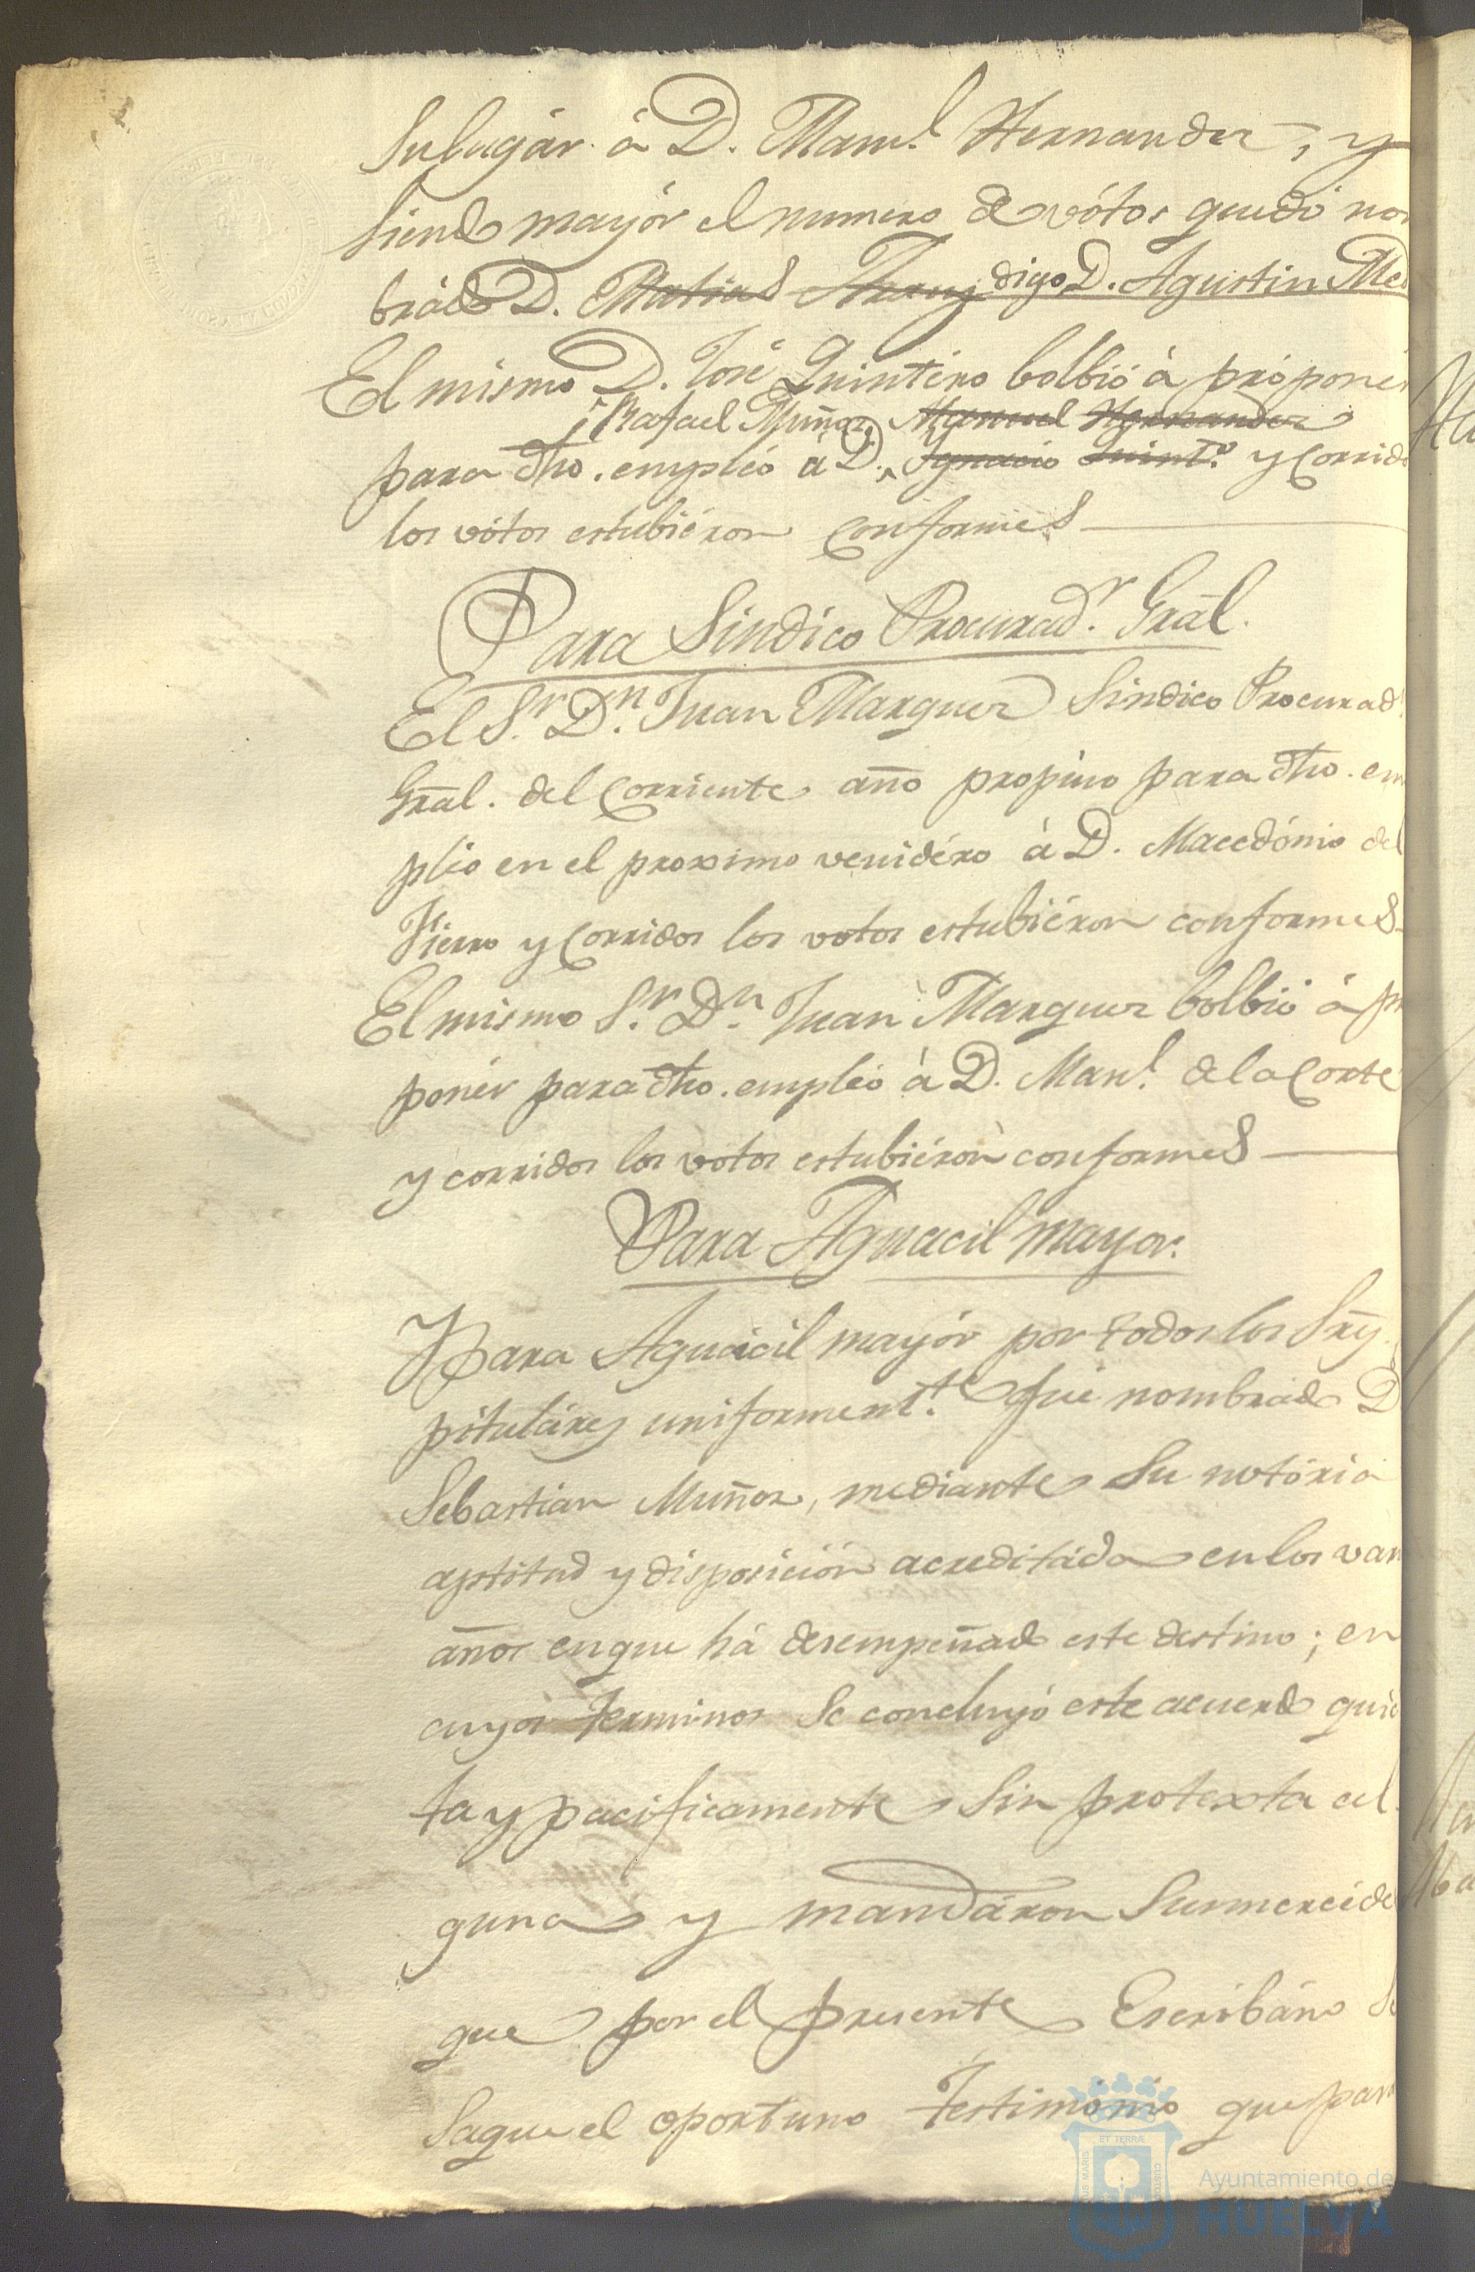 Su lugár á D. Man.l Hernandez, y
siendo mayór el numero de vótos quedó nom
brádo D. Matias digo D. Agustin Me
El mismo D. José Quintéro bolbió á próponér
Rafael Muñoz, Manuel Hernandez
para dho. empléo á D. Ignacio Quint.o y Corrido
los vótos estubiéron conformes
Para Sindico Procurad.r Grãl.
El S.r D.n Juan Marquez Sindico Procurad.r
Grãl. del Corriente año propúso para dho. em
pléo en el proximo venidéro á D. Macedónio del
Fierro y Corridos los votos estubiéron conformes
El mismo S.r D.n Juan Marquez bolbió á pro
ponér para dho. empléo á D. Man.l de la Corte
y corridos los votos estubiéron conformes
Para Aguacil mayor.
Para Aguacil mayór por todos los Sres.
pituláres uniforment.e fué nombrado D
Sebastian Muñoz, mediante su notória
aptitud y disposición acreditáda en los vari
años en que há desempeñado este destino; en
cuyos terminos se concluyó este acuerdo quie
ta y pacificamente sin protexta al
guna y mandáron Sumercéde
que por el presente Escribáno Se
Saque el oportuno testimónio que para
ET TERRÆ
MARIS
CUSTOS
Ayuntamiento de
HUELVA